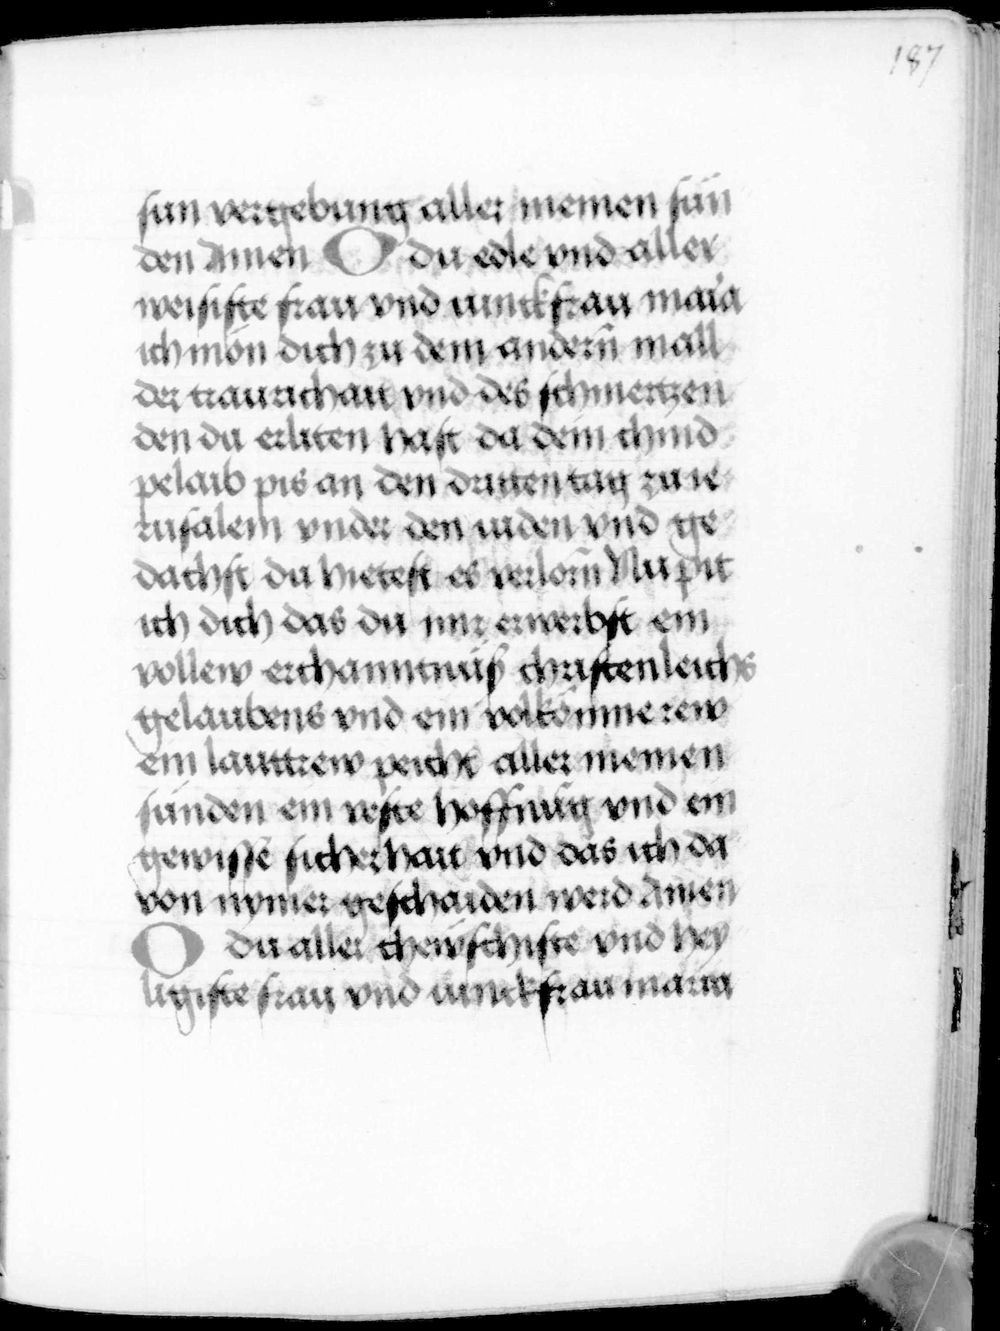 187
sun vergebung aller meinen sün
den Amen O du edle vnd aller
weisiste frau vnd iunckfrau maria
ich món dich zu dem andern mall
der traurichait vnd des schmertzen
den du erliten hast da dein chind
pelaib pis an den dritten tag zu ie
rusalem vnder den iuden vnd ge
dachst du hietest es verlorn Nu pit
ich dich das du mir erwerbst ein
vollew erchanntnuß christenleichs
gelaubens vnd ein volkömne rew
ein lauttrew peicht aller meinen
sünden ein veste hoffnūg vnd ein
gewisse sicherhait vnd das ich da
von nymer geschaiden werd Amen
O du aller chewschiste vnd hey
ligiste frau vnd iunckfrau maria